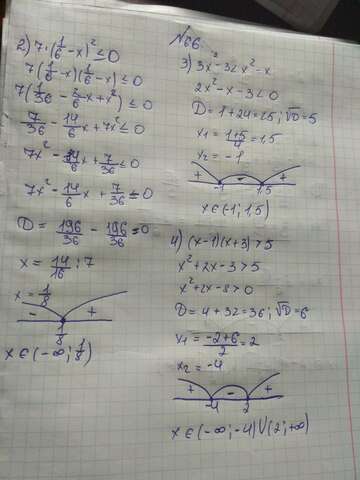 2) 7·(1/6 - x)² ≤ 0
7(1/6 - x)(1/6 - x) ≤ 0
7(1/36 - 2/6 x + x²) ≤ 0
7/36 - 14/6 x + 7x² ≤ 0
7x² - 14/6 x + 7/36 ≤ 0
7x² - 14/6 x + 7/36 ≤ 0
D = 196/36 - 196/36 = 0
x = 14/16 : 7
x = 1/8
- +
1/8
x ∈ (-∞; 1/8)
№66.
3) 3x² - 3 < x² - x
2x² - x - 3 < 0
D = 1 + 24 = 25; √D = 5
x₁ = 1+5/4 = 1,5
x₂ = -1
+ - +
-1 1,5
x ∈ (-1; 1,5)
4) (x-1)(x+3) > 5
x² + 2x - 3 > 5
x² + 2x - 8 > 0
D = 4 + 32 = 36; √D = 6
x₁ = -2+6/2 = 2
x₂ = -4
+ - +
-4 2
x ∈ (-∞; -4) ∪ (2; +∞)